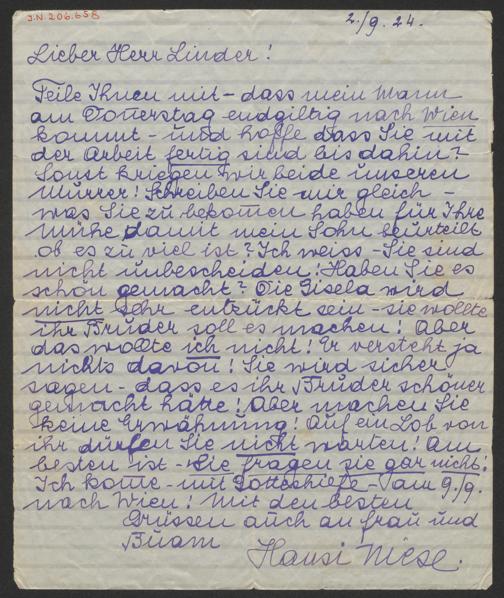 J.N. 206.658
2./9. 24.
Lieber Herr Linder!
Teile Ihnen mit – dass mein Mann
am Donerstag endgiltig nach Wien
kommt – und hoffe dass Sie mit
der Arbeit fertig sind bis dahin?
Sonst kriegen wir beide unseren
Murrer! Schreiben Sie mir gleich –
was Sie zu bekomen haben für Ihre
Mühe damit mein Sohn beurteilt
ob es zu viel ist? Ich weiss – Sie sind
nicht unbescheiden! Haben Sie es
schön gemacht? Die Gisela wird
nicht sehr entzückt sein – sie wollte
ihr Bruder soll es machen! Aber
das wollte ich nicht! Er versteht ja
nichts davon! Sie wird sicher
sagen – dass es ihr Bruder schöner
gemacht hätte! Aber machen Sie
keine Erwähnung! Auf ein Lob von
ihr dürfen Sie nicht warten! Am
besten ist – Sie fragen sie gar nicht!
Ich kome – mit Gotteshilfe – am 9./9.
nach Wien! Mit den besten
Grüssen auch an Frau und
Buam
Hansi Niese.